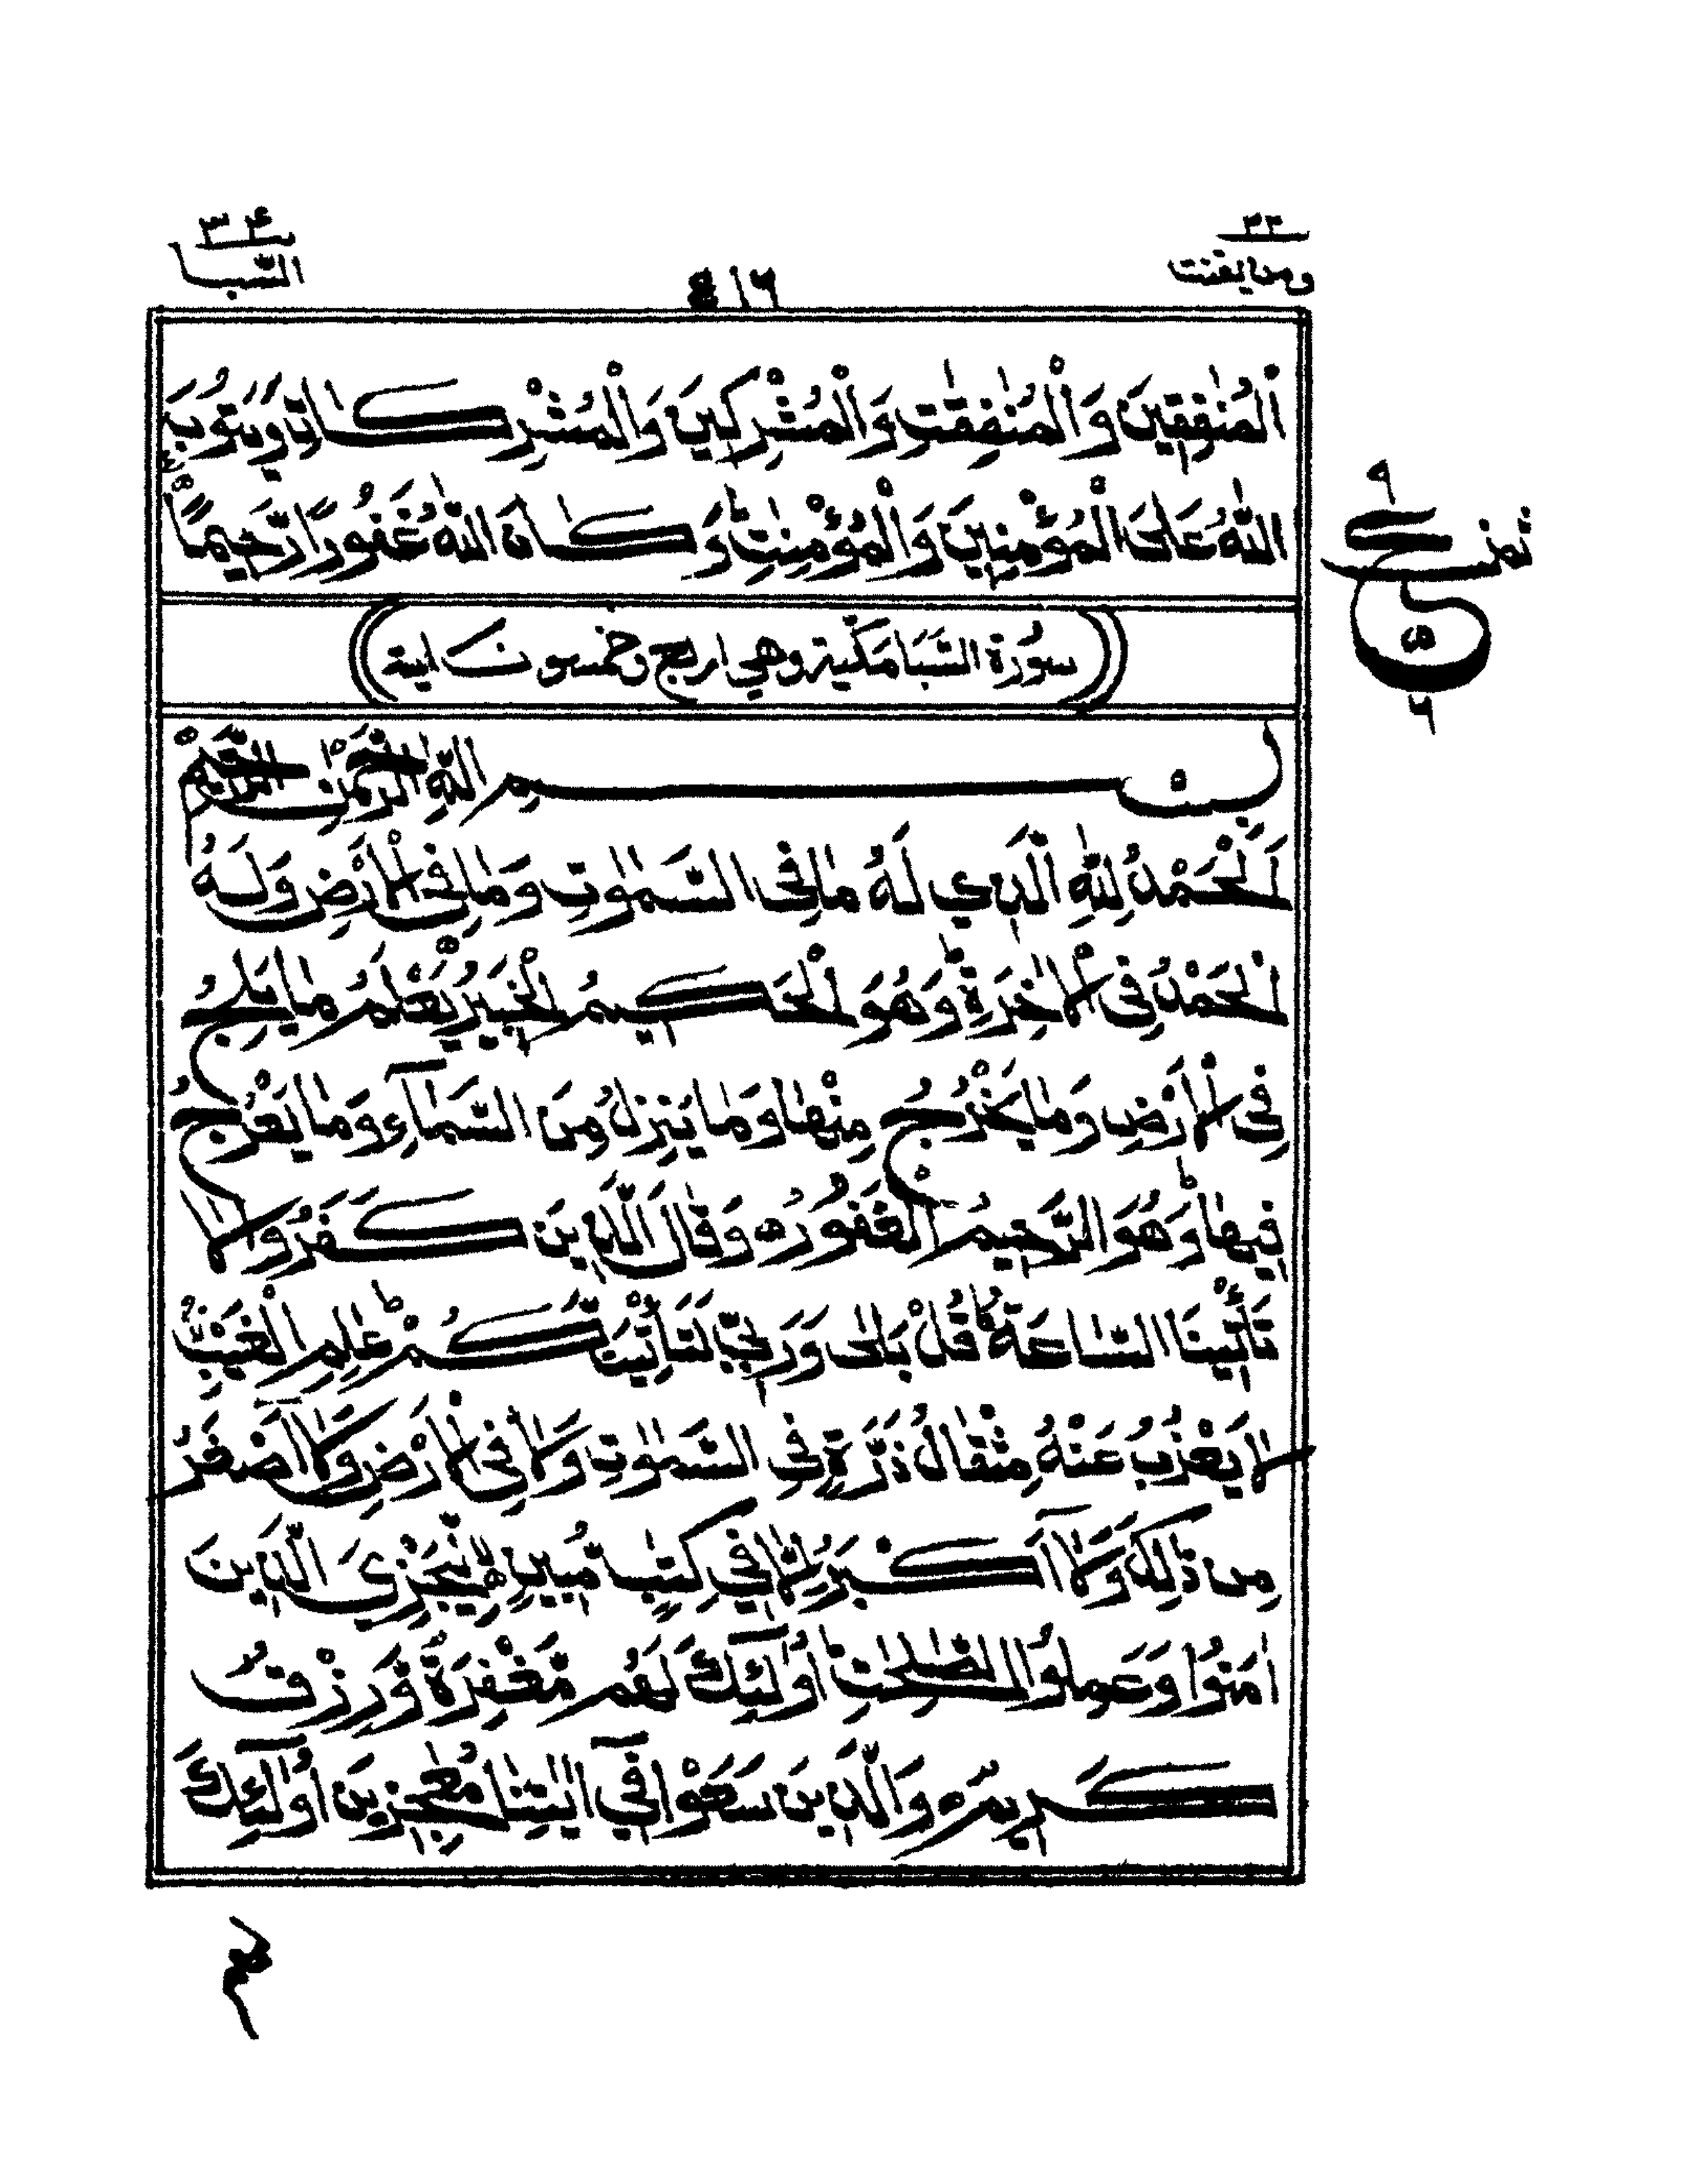 ٣٤
السبا
٤١٦
٢٢
ومن يقنت
الْمُنٰفِقِيْنَ وَالْمُنٰفِقٰتِ وَالْمُشْرِكِيْنَ وَالْمُشْرِكٰتِ وَيَتُوْبَ
اللّٰهُ عَلَى الْمُؤْمِنِيْنَ وَالْمُؤْمِنٰتِؕ وَكَانَ اللّٰهُ غَفُوْرًا رَّحِيْمًا
٩
ثمن
ع
٥
٦
سُوْرَةُ السَّبَا مَكِّيَة وهي اربع وخمسون اية
بِسْمِ اللّٰهِ الرَّحْمٰنِ الرَّحِيْمِ
اَلْحَمْدُ لِلّٰهِ الَّذِي لَهُ مَا فِى السَّمٰوٰتِ وَمَا فِى الْاَرْضِ وَلَهُ
الْحَمْدُ فِى الْاٰخِرَةِؕ وَهُوَ الْحَكِيْمُ الْخَبِيْرُ يَعْلَمُ مَا يَلِجُ
فِى الْاَرْضِ وَمَا يَخْرُجُ مِنْهَا وَمَا يَنْزِلُ مِنَ السَّمَآءِ وَمَا يَعْرُجُ
فِيْهَاؕ وَهُوَ الرَّحِيْمُ الْغَفُوْرُ ه وَقَالَ الَّذِيْنَ كَفَرُوْا لَا
تَأْتِيْنَا السَّاعَةُؕ قُلْ بَلٰى وَرَبِّيْ لَتَأْتِيَنَّكُمْؕ عٰلِمِ الْغَيْبِ
لَا يَعْزُبُ عَنْهُ مِثْقَالُ ذَرَّةٍ فِى السَّمٰوٰتِ وَلَا فِى الْاَرْضِ وَلَآ اَصْغَرُ
مِنْ ذٰلِكَ وَلَآ اَكْبَرُ اِلَّا فِيْ كِتٰبٍ مُّبِيْنٍ ه لِّيَجْزِىَ الَّذِيْنَ
اٰمَنُوْا وَعَمِلُوا الصّٰلِحٰتِؕ اُولٰٓئِكَ لَهُمْ مَّغْفِرَةٌ وَّرِزْقٌ
كَرِيْمٌ ه وَالَّذِيْنَ سَعَوْا فِيْٓ اٰيٰتِنَا مُعٰجِزِيْنَ اُولٰٓئِكَ
لهم